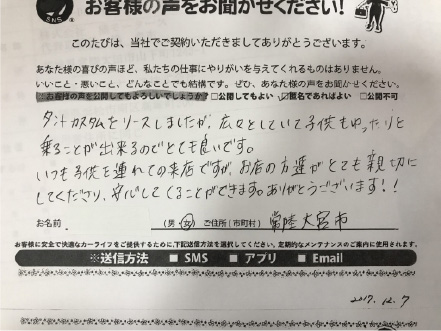 SNS
お客様の声をお聞かせください!
このたびは、当社でご契約いただきましてありがとうございます。
あなた様の喜びの声ほど、私たちの仕事にやりがいを与えてくれるものはありません。
いいこと・悪いこと、どんなことでも結構です。ぜひ、あなた様の声をお聞かせください。
※お客様の声を公開してもよろしいでしょうか? □公開してもよい ☑匿名であればよい □公開不可
タントカスタムをリースしましたが、広々としていて子供もゆったりと
乗ることが出来るのでとても良いです。
いつも子供を連れての来店ですが、お店の方達がとても親切に
してくださり、安心してくることができます。ありがとうございます!!
お名前 (男・女) ご住所(市町村) 常陸大宮市
お客様に安全で快適なカーライフをご提供するために、下記送信方法を選択してください。定期的なメンテナンスのご案内に使用されます。
※送信方法 ■SMS ■アプリ ■Email
2017.12.7